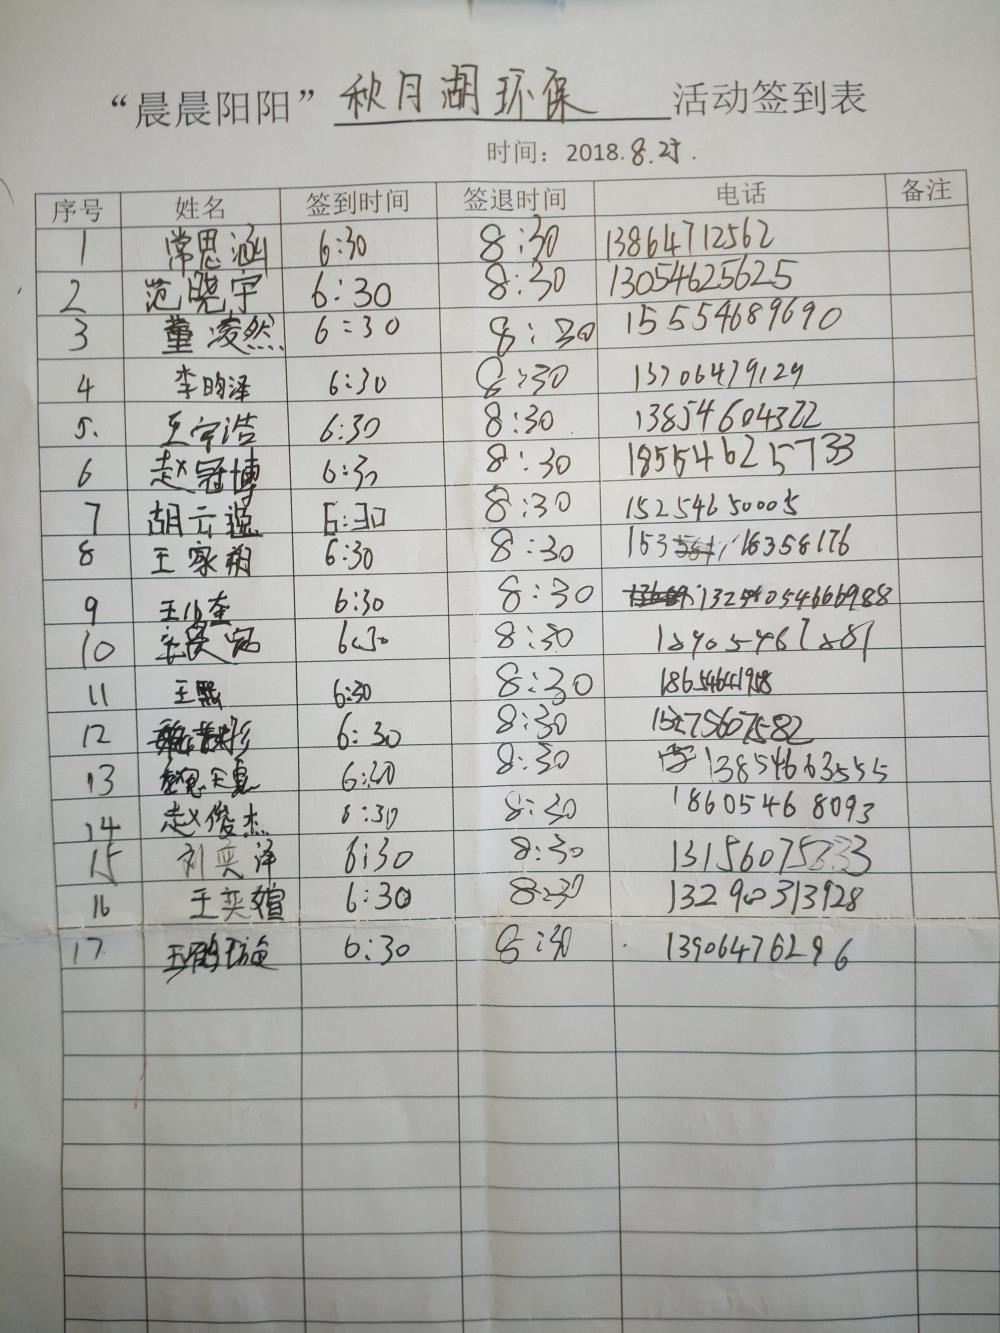 “晨晨阳阳” 秋月湖环保 活动签到表
时间：2018.8.25.
序号 姓名 签到时间 签退时间 电话 备注
1 常思涵 6:30 8:30 13864712562
2 范晓宇 6:30 8:30 13054625625
3 董凌然 6:30 8:30 15554689690
4 李昀泽 6:30 8:30 13706479129
5. 王宇浩 6:30 8:30 13854604322
6 赵冠博 6:30 8:30 18554625733
7 胡云 6:30 8:30 15254650005
8 王家 6:30 8:30 16358176
9 王 6:30 8:30
10 6:30 8:30 18905461881
11 王 6:30 8:30
12 6:30 8:30
13 6:30 8:30 13854663555
14 赵俊杰 6:30 8:30 18605468093
15 刘奕泽 6:30 8:30
16 王奕萱 6:30 8:30 13290313928
17 王 6:30 8:30 13906476296